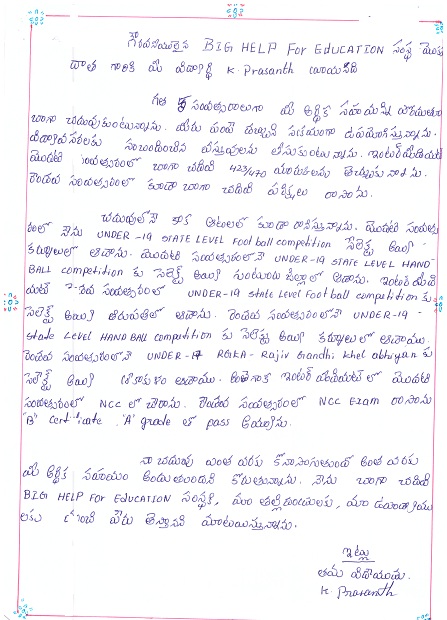 గౌరవనీయులైన BIG HELP For EDUCATION సంస్థ
దాత గారికి మీ విద్యార్థి K. Prasanth వ్రాయునది
గత 5 సంవత్సరాలుగా మీ ఆర్థిక సహాయన్ని
బాగా చదువుకుంటున్నాను. మీరు పంపే డబ్బుని
సంబంధించిన వస్తువులను తీసుకుంటున్నాను. ఇంటర్మీడియట్
మొదటి సంవత్సరంలో బాగా చదివి 423/470 మార్కులను తెచ్చుకున్నాను.
రెండవ సంవత్సరంలో కూడా బాగా చదివి పరీక్షలు రాసాను.
చదువులోనే కాక ఆటలలో కూడా రాణిస్తున్నాను. మొదటి సంవత్స
రంలో నేను UNDER-19 STATE LEVEL Foot ball competition సెలెక్ట్ అయ్యి
కర్నూలులో ఆడాను. మొదటి సంవత్సరంలోనే UNDER-19 STATE LEVEL HAND
BALL competition కు సెలెక్ట్ అయ్యి గుంటూరు జిల్లాలో ఆడాను. ఇంటర్మీడి
యట్ సంవత్సరంలో UNDER-19 state level Foot ball competition కు
సెలెక్ట్ అయ్యి తిరుపతిలో ఆడాను. రెండవ సంవత్సరంలోనే UNDER-19
state LEVEL HAND BALL competition కు సెలెక్టు అయ్యి కర్నూలులో ఆడాము.
రెండవ సంవత్సరంలోనే UNDER-17 RGKA - Rajiv Gandhi khel abhiyan కు
సెలెక్ట్ అయ్యి ఆడాము. అంతేగాక ఇంటర్మీడియట్ లో మొదటి
సంవత్సరంలో NCC లో చేరాను. రెండవ సంవత్సరంలో NCC Exam రాసాను
"B" certificate 'A' grade లో pass అయ్యాను.
నా చదువు ఎంత వరకు కొనసాగుతుందో అంత వరకు
మీ ఆర్థిక సహాయం ఉండుతుందని కోరుతున్నాను. నేను బాగా చదివి
BIG HELP For EDUCATION సంస్థకి, మా తల్లిదండ్రులకు, మా ఉపాధ్యాయు
లకు మంచి పేరు తెస్తానని మాటఇస్తున్నాను.
ఇట్లు
తమ విధేయుడు.
K. Prasanth